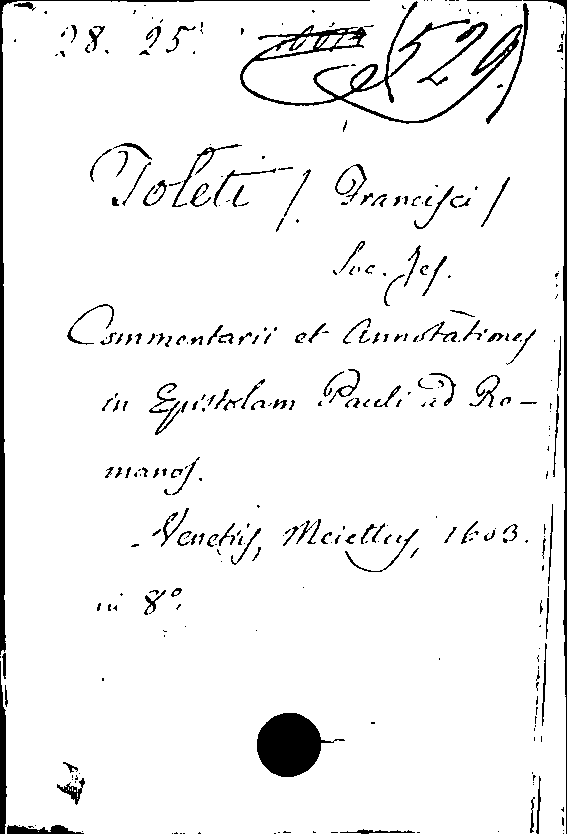 28. 25. (529)
Toleti /. Francisci /
Soc. Jes.
Commentarii et Annotationes
in Epistolam Pauli ad Ro-
manos.
Venetiis, Meiettus, 1603.
in 8°.